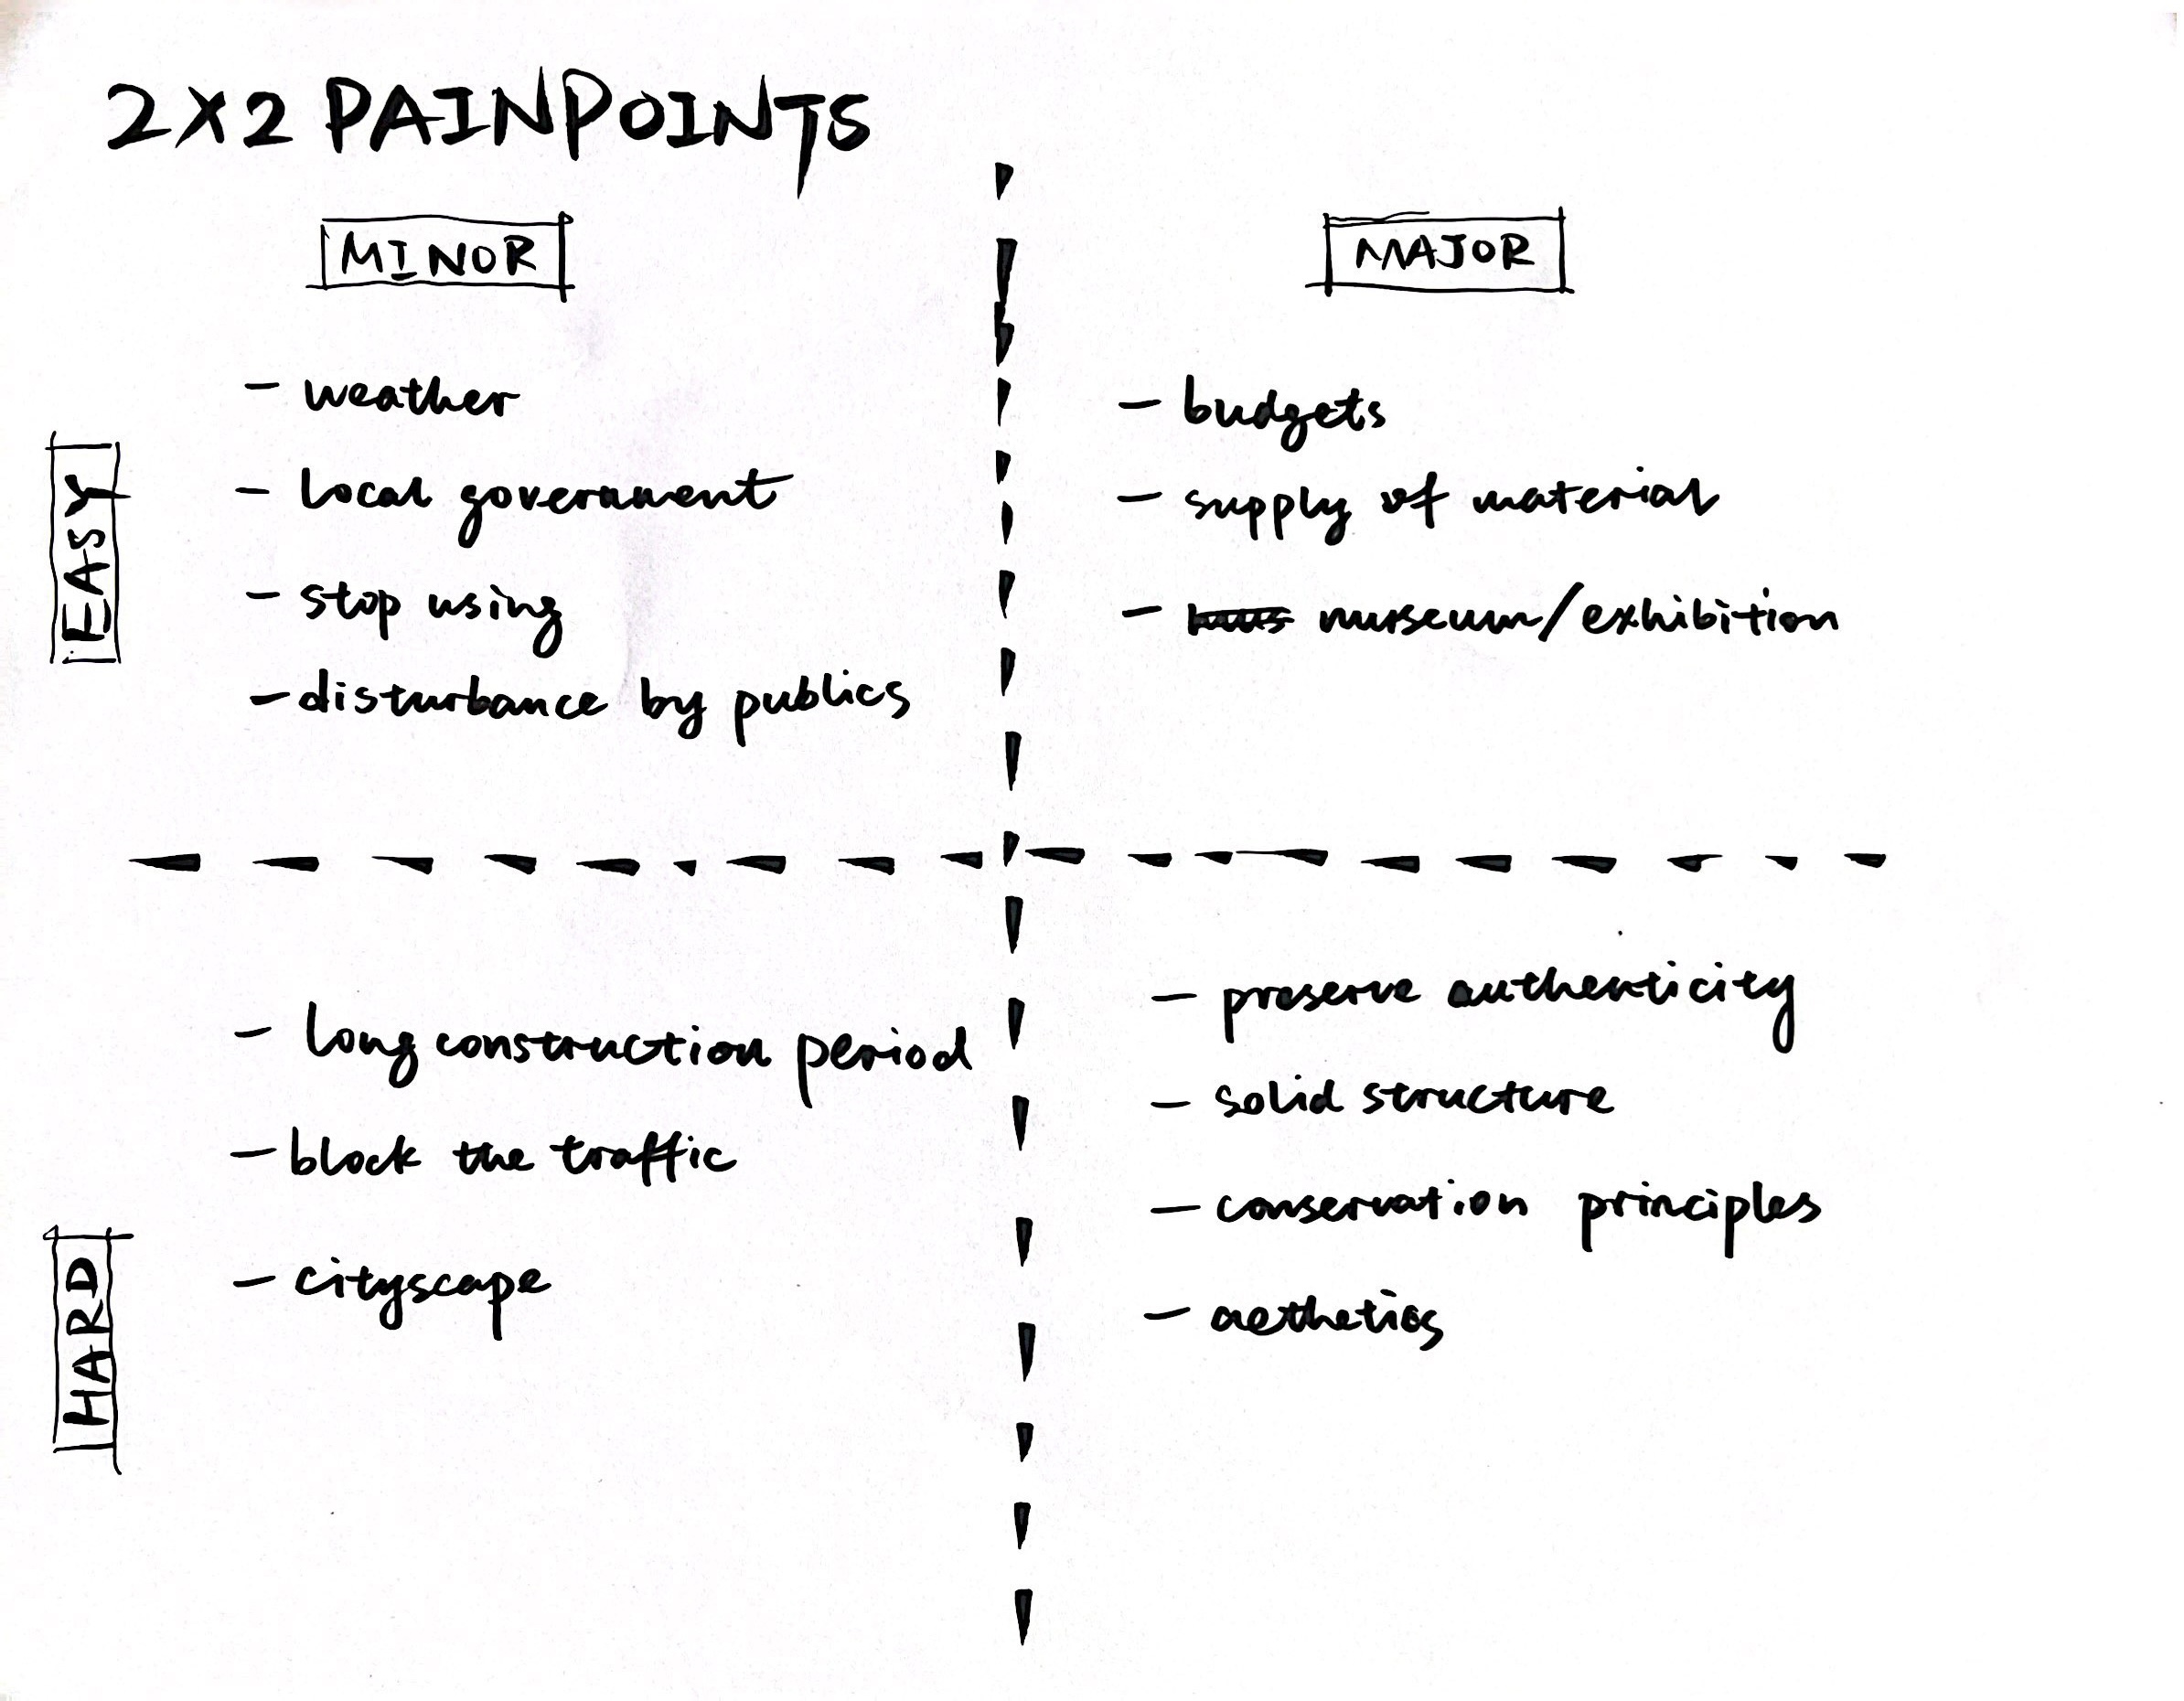 2X2 PAINPOINTS
MINOR
MAJOR
EASY
- weather
- local government
- stop using
- disturbance by publics
- budgets
- supply of material
- murseum/exhibition
HARD
- long construction period
- block the traffic
- cityscape
- preserve authenticity
- solid structure
- conservation principles
- aethetics